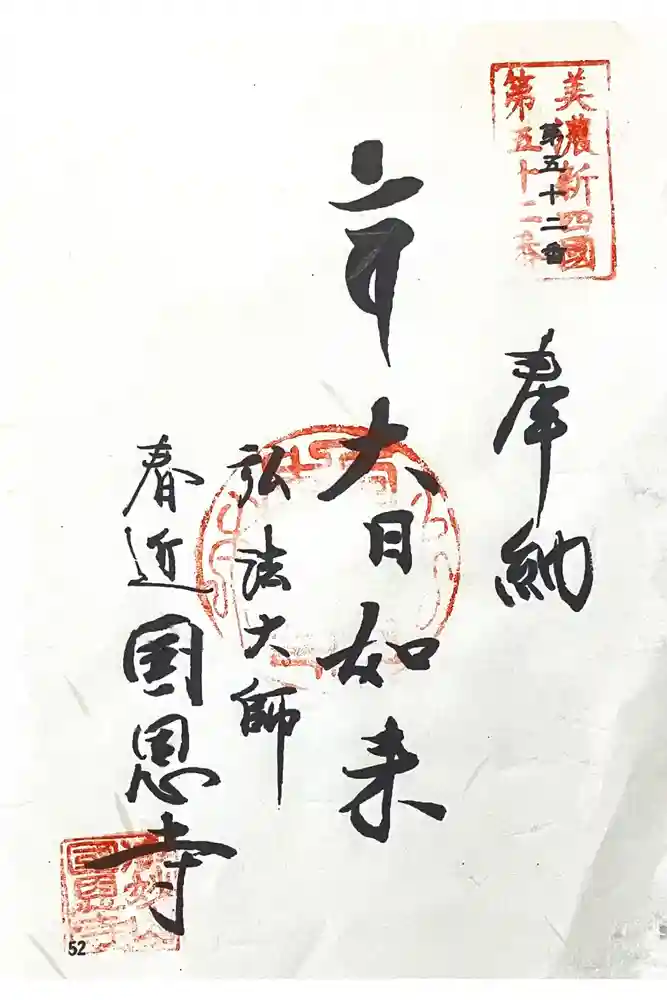 美濃新四國
第五十二番
第五十二番
奉納
大日如来
弘法大師
春近国恩寺
国恩寺
52